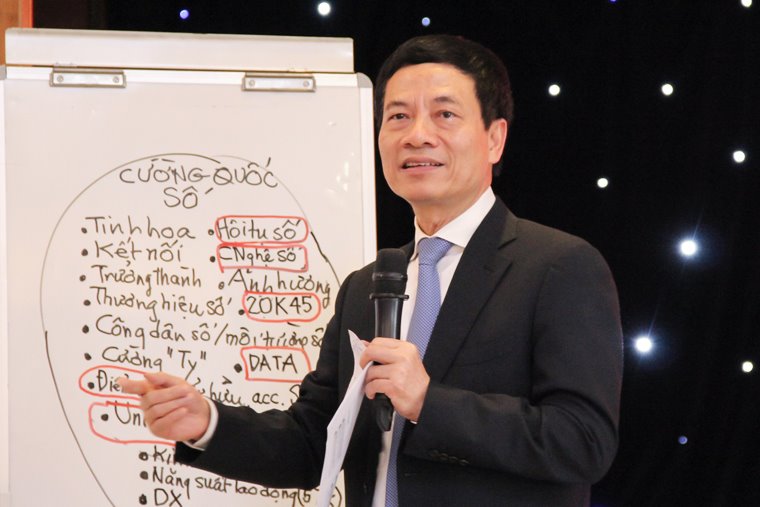 CƯỜNG QUỐC
SỐ
• Tinh hoa • Hội tụ số
• Kết nối • CNghệ số
• Trưởng thành • Ảnh hưởng
• Thương hiệu số • 20K45
• Công dân số / môi trường số
• Cường "Tỵ" • DATA
• acc.
• Năng suất lao động (5
• DX